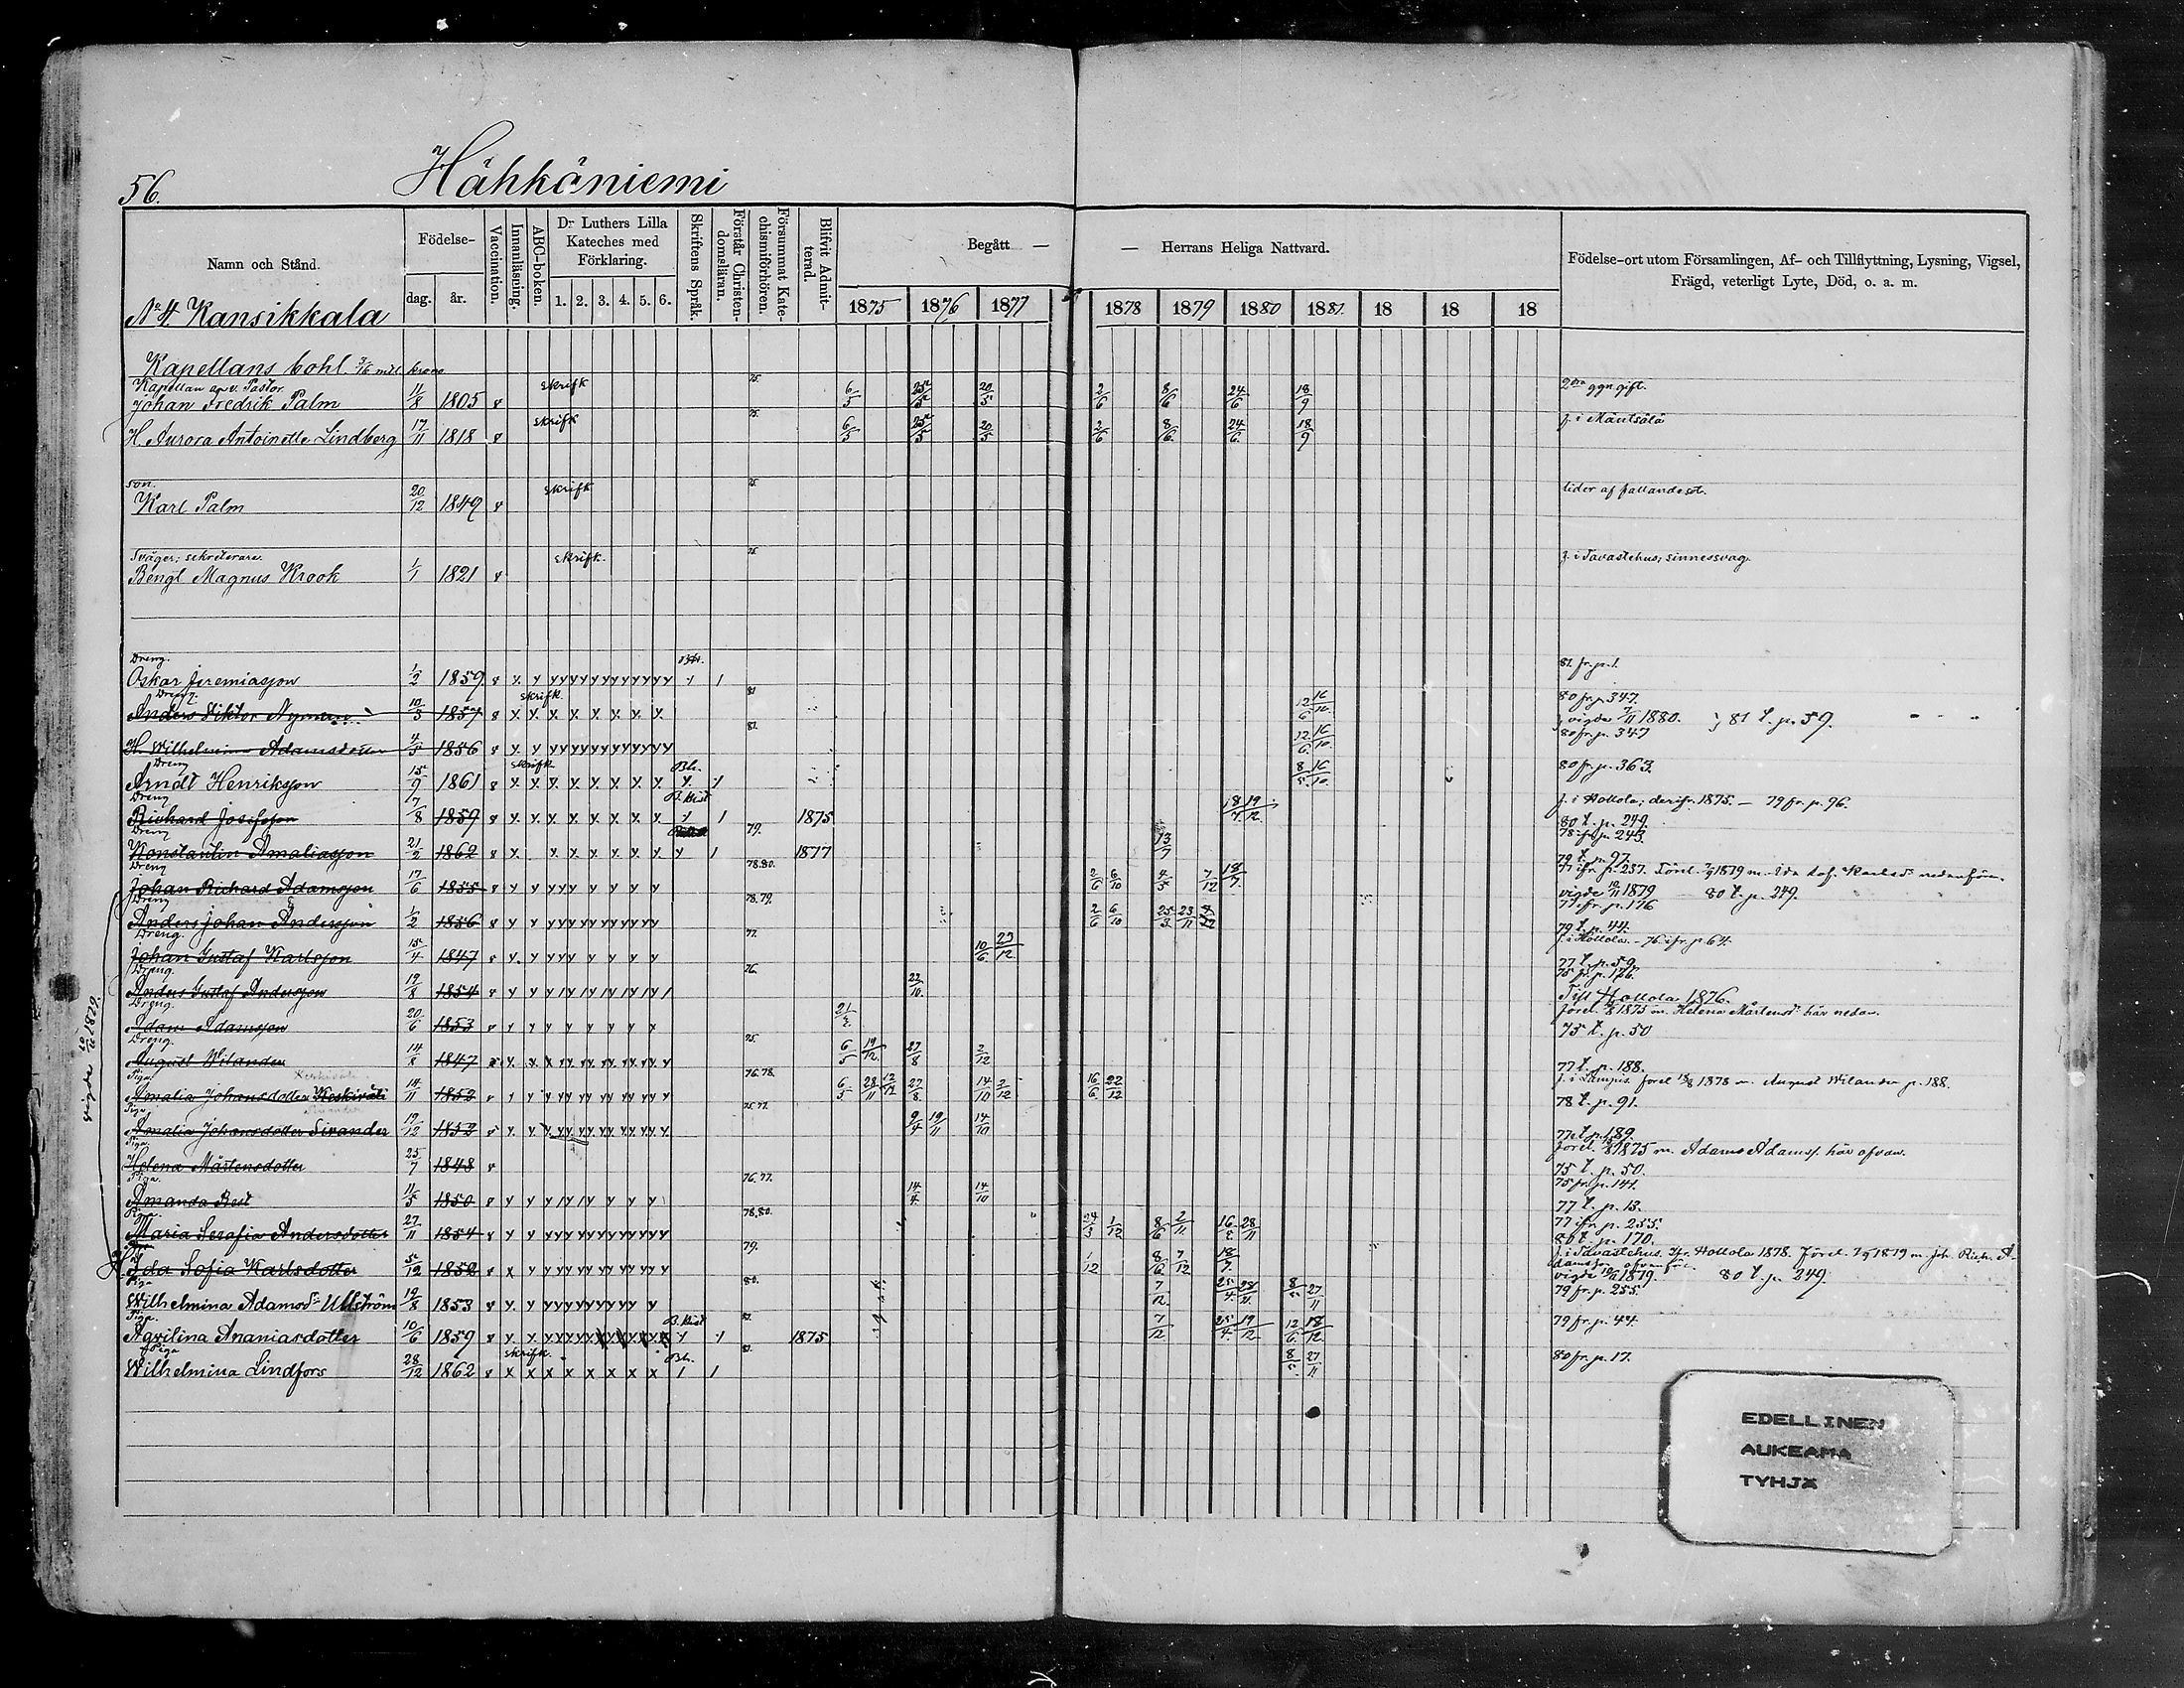 56.
Hähkäniemi
Namn och Stånd.
Födelse-
dag.
år.
Vaccination.
Innanläsning.
ABC-boken.
Dr Luthers Lilla Kateches med Förklaring.
1. 2. 3. 4. 5. 6.
Skriftens Språk.
Förstår Christen-domsläran.
Försummat Kate-chismiförhören.
Blifvit Admit-terad.
Begått —
— Herrans Heliga Nattvard.
1875 1876 1877
1878 1879 1880 1881 18 18 18
Födelse-ort utom Församlingen, Af- och Tillflyttning, Lysning, Vigsel,
Frägd, veterligt Lyte, Död, o. a. m.
No 4. Kansikkala
Kapellans bohl
Kapellan Pastor
Johan Fredrik Palm 11/8 1805 skrift 6/5 20/5 2/6 8/6 24/6 18/9 ggn gift.
H. Aurora Antoinette Lindberg 17/11 1818 skrift 6/5 20/5 2/6 8/6 24/6 18/9 f. i Mäntsälä
son.
Karl Palm 20/12 1849 skrift lider af fallandesot.
Svåger; sekreterare.
Bengt Magnus Krook 1/1 1821 skrift f. i Tavastehus; sinnessvag.
Dreng.
Oskar Jeremiasson 1/2 1859 81 fr. p. 1.
Dreng.
Anders Viktor Nyman 10/3 1857 skrift. 80 fr. p. 347.
vigde 7/11 1880. 81 t. p. 59.
H. Wilhelmina Adamsdotter 4/5 1856 80 fr. p. 347
Dreng
Arndt Henriksson 15/9 1861 skrift Bh. 80 fr. p. 363.
Dreng
Richard Josefsson 7/8 1859 1875 f. i Hollola; derifr. 1875. — 79 fr. p. 96.
80 t. p. 249.
Dreng
Konstantin Amaliasson 21/2 1862 79. 1877 13/7 78 ifr. p. 243.
79 t. p. 97.
Dreng
Johan Richard Adamsson 17/6 1855 78.80. 2/6 6/10 4/5 7/12 18/7 77 ifr. p. 237.
vigde 1879 80 t. p. 249.
Dreng
Anders Johan Andersson 1/2 1856 78.79. 2/6 6/10 25/3 23/11 77 ifr. p. 176
79 t. p. 44.
Dreng.
Johan Gustaf Karlsson 15/4 1847 77. 10/6 23/12 f. i Hollola. - 76 ifr. p. 64.
77 t. p. 59.
Dreng.
Anders Gustaf Andersson 19/8 1854 76. 22/10 75 fr. p. 176.
Till Hollola 1876.
Dreng.
Adam Adamsson 20/6 1853 förel. 1875 m. Helena Mårtensdr här nedan.
75 t. p. 50
Dreng.
August Wilander 14/8 1847 75. 6/5 19/12 27/8 2/12 77 t. p. 188.
Piga
Amalia Johansdotter Keskiväli 14/11 1852 76.78. 6/5 28/11 27/8 14/10 2/12 16/6 22/12 f. i Lampis. förel 1878 m. August Wilander p. 188.
78 t. p. 91.
Piga
Amalia Johansdotter Sirander 17/12 1852 75.77. 9/4 19/11 14/10 77 t. p. 189.
Piga.
Helena Mårtensdotter 25/7 1848 förel. 1875 m. Adam Adamss. här ofvan.
75 t. p. 50.
Piga.
Amanda Rest 11/5 1850 76.77. 14/4 14/10 75 fr. p. 141.
77 t. p. 13.
Piga.
Maria Serafia Andersdotter 27/11 1854 78.80. 24/3 1/12 8/6 2/11 28/11 77 ifr. p. 255.
80 t. p. 170.
Ida Sofia Karlsdotter 5/12 1852 79. 1/12 8/6 7/12 18/7 f. i Tavastehus. Hollola 1878. Förel. 1879 m. Joh. Rich. A-
damsson ofvanför.
vigde 1879. 80 t. p. 249.
Piga
Wilhelmina Adamsdr Ullström 19/8 1853 80. 7/12 25/4 28/11 8/5 27/11 79 fr. p. 255.
Piga.
Aqvilina Ananiasdotter 10/6 1859 1875 7/12 25/4 19/12 12/6 18/12 79 fr. p. 44.
Piga
Wilhelmina Lindfors 28/12 1862 skrift. Bh. 8/5 27/11 80 fr. p. 17.
vigde 1879.
EDELLINEN
AUKEAMA
TYHJÄ